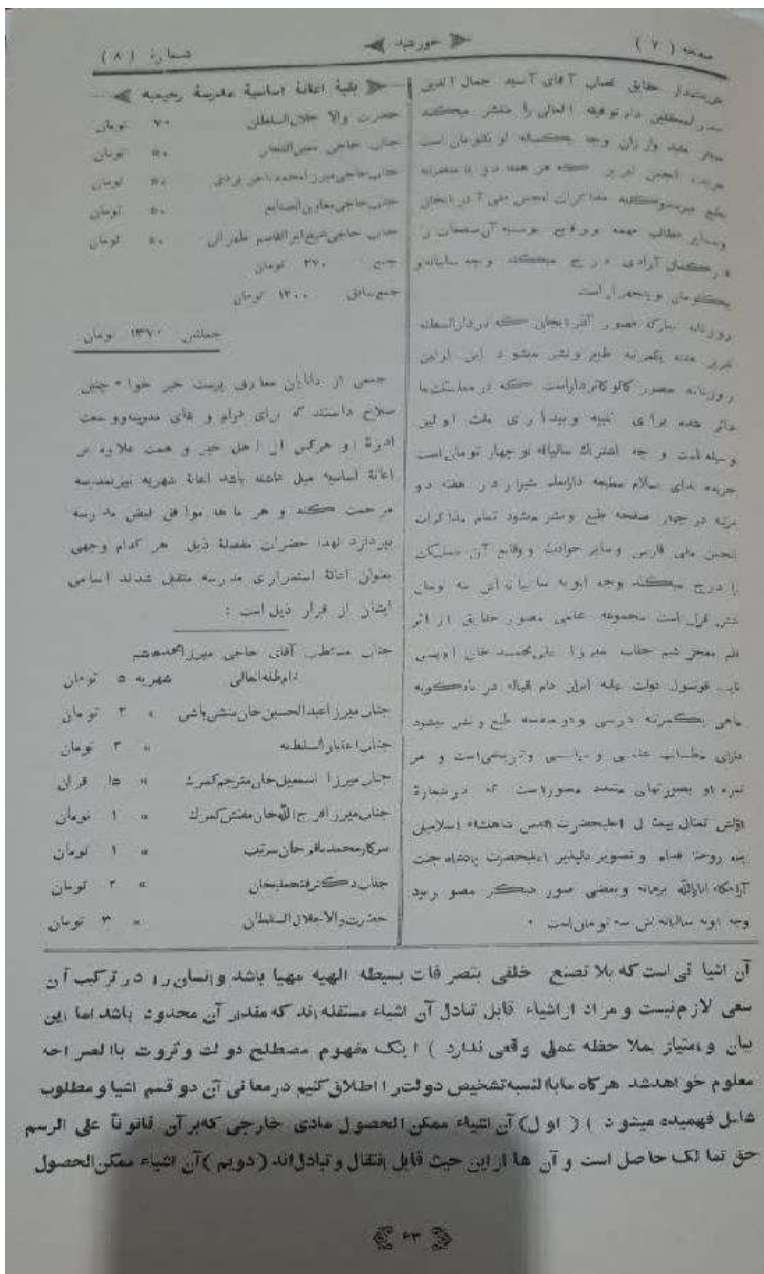 صفحه (۷)
خورشید
شمارهٔ (۸)
حقایق آقای آسید جمال الدین
دام توفیقه العالی را منتشر میکند
وجه یکساله او یکتومان است
جریده انجمن تبریز که هر هفته دو یا سه مرتبه
طبع میشود کلیه مذاکرات انجمن ملی آذربایجان
و سایر مطالب مهمه و وقایع آن صفحات را
در کمال آزادی درج میکند وجه سالیانه او
یکتومان و پنجهزار است
روزنامه مبارکه مصور آذربایجان که در دارالسلطنه
تبریز هفته یکمرتبه طبع و نشر میشود این اولین
روزنامه مصور کاریکاتوردار است که در مملکت ما
دائر شده برای تنبیه و بیداری ملت اولین
وسیله است وجه اشتراک سالیانه او چهار تومان است
جریده ندای اسلام مطبعه دارالعلم شیراز در هفته دو
مرتبه در چهار صفحه طبع و نشر میشود تمام مذاکرات
انجمن ملی فارس و سایر حوادث و وقایع آن مملکت
را درج میکند وجه ابونه سالیانه اش سه تومان
شش قران است مجموعه علمی مصور حقایق از اثر
قلم معجز شیم جناب میرزا علی محمد خان اویسی
نایب قونسول دولت علیه ایران دام اقباله در بادکوبه
ماهی یکمرتبه درسی و دو صفحه طبع و نشر میشود
دارای مطالب علمی و سیاسی و تاریخی است و هر
نمره او بصورتهای متعدد مصور است که در شمارهٔ
اولش تمثال بیمثال اعلیحضرت اقدس شاهنشاه اسلامیان
پناه روحنا فداه و تصویر دلپذیر اعلیحضرت پادشاه جنت
آرامگاه انارالله برهانه و بعضی صور دیگر مصور بود
وجه ابونه سالیانه اش سه تومان است ٠
بقیهٔ اعانهٔ اساسیهٔ مدرسهٔ رحیمیه
حضرت والا جلال السلطان ۷۰ تومان
جناب حاجی معین التجار ۵۰ تومان
جناب حاجی میرزا محمد باقر یزدی ۵۰ تومان
جناب حاجی معاون الصنایع ۵۰ تومان
جناب حاجی شیخ ابوالقاسم طهرانی ۵۰ تومان
جمع ۲۷۰ تومان
جمع سابق ۱۲۰۰ تومان
جملتین ۱۴۷۰ تومان
جمعی از دانایان معارف پرست خیر خواه چنین
صلاح دانستند که برای دوام و بقای مدرسه و وسعت
ادارهٔ او هرکس از اهل خیر و همت علاوه بر
اعانهٔ اساسیه میل داشته باشد اعانهٔ شهریه نیز بمدرسه
مرحمت کند و هر ماهه موافق قبض مدرسه
بپردازد لهذا حضرات مفصلهٔ ذیل هر کدام وجهی
بعنوان اعانهٔ استمراری مدرسه متقبل شدند اسامی
ایشان از قرار ذیل است :
جناب مستطاب آقای حاجی میرزا
دام ظله العالی شهریه ۵ تومان
جناب میرزا عبدالحسین خان منشی باشی » ۲ تومان
جناب اعتبار السلطنه » ۳ تومان
جناب میرزا اسمعیل خان مترجم گمرک » ۱۵ قران
جناب میرزا فرج الله خان مفتش گمرک » ۱ تومان
سرکار محمد باقر خان سرتیپ » ۱ تومان
جناب دکتر فتحعلیخان » ۲ تومان
حضرت والا جلال السلطان » ۳ تومان
آن اشیا ئی است که بلا تصنع خلقی بتصرفات بسیطه الهیه مهیا باشد و انسان را در ترکیب آن
سعی لازم نیست و مراد از اشیاء قابل تبادل آن اشیاء مستقله اند که مقدار آن محدود باشد اما این
بیان و امتیاز بملا حظه عملی وقعی ندارد ) اینک مفهوم مصطلح دولت و ثروت باالصراحه
معلوم خواهد شد هرگاه ما بالنسبه تشخیص دولت را اطلاق کنیم در معانی آن دو قسم اشیا و مطلوب
شامل فهمیده میشود ) ( اول ) آن اشیاء ممکن الحصول مادی خارجی که بر آن قانوناً علی الرسم
حق تمالک حاصل است و آن ها از این حیث قابل انتقال و تبادل اند ( دویم ) آن اشیاء ممکن الحصول
۶۳